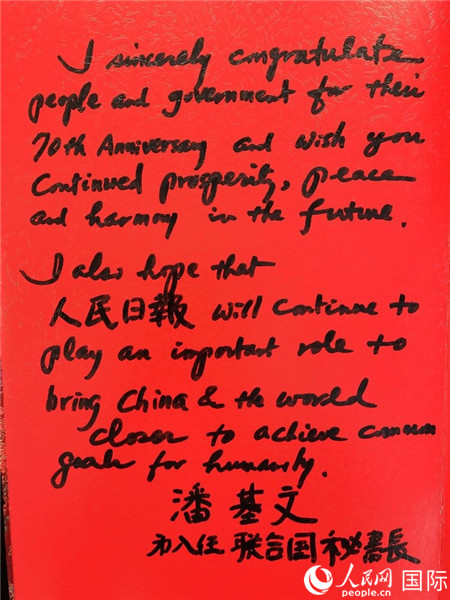 I sincerely congratulate
people and government for their
70th Anniversary and wish you
continued prosperity, peace
and harmony in the future.
I also hope that
人民日報 will continue to
play an important role to
bring China & the world
closer to achieve common
goals for humanity.
潘基文
八任 联合国 秘書長
人民网 国际
people.cn